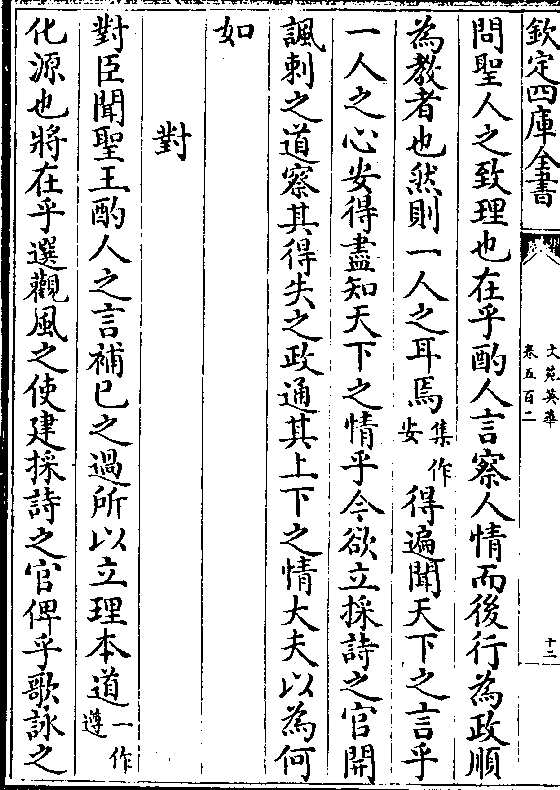 欽定四庫全書
文苑英華
卷五百二
十二
問聖人之致理也在乎酌人言察人情而後行為政順
為教者也然則一人之耳焉集作安得遍聞天下之言乎
一人之心安得盡知天下之情乎今欲立採詩之官開
諷刺之道察其得失之政通其上下之情大夫以為何
如
對
對臣聞聖王酌人之言補已之過所以立理本道一作遵
化源也將在乎選觀風之使建採詩之官俾乎歌詠之